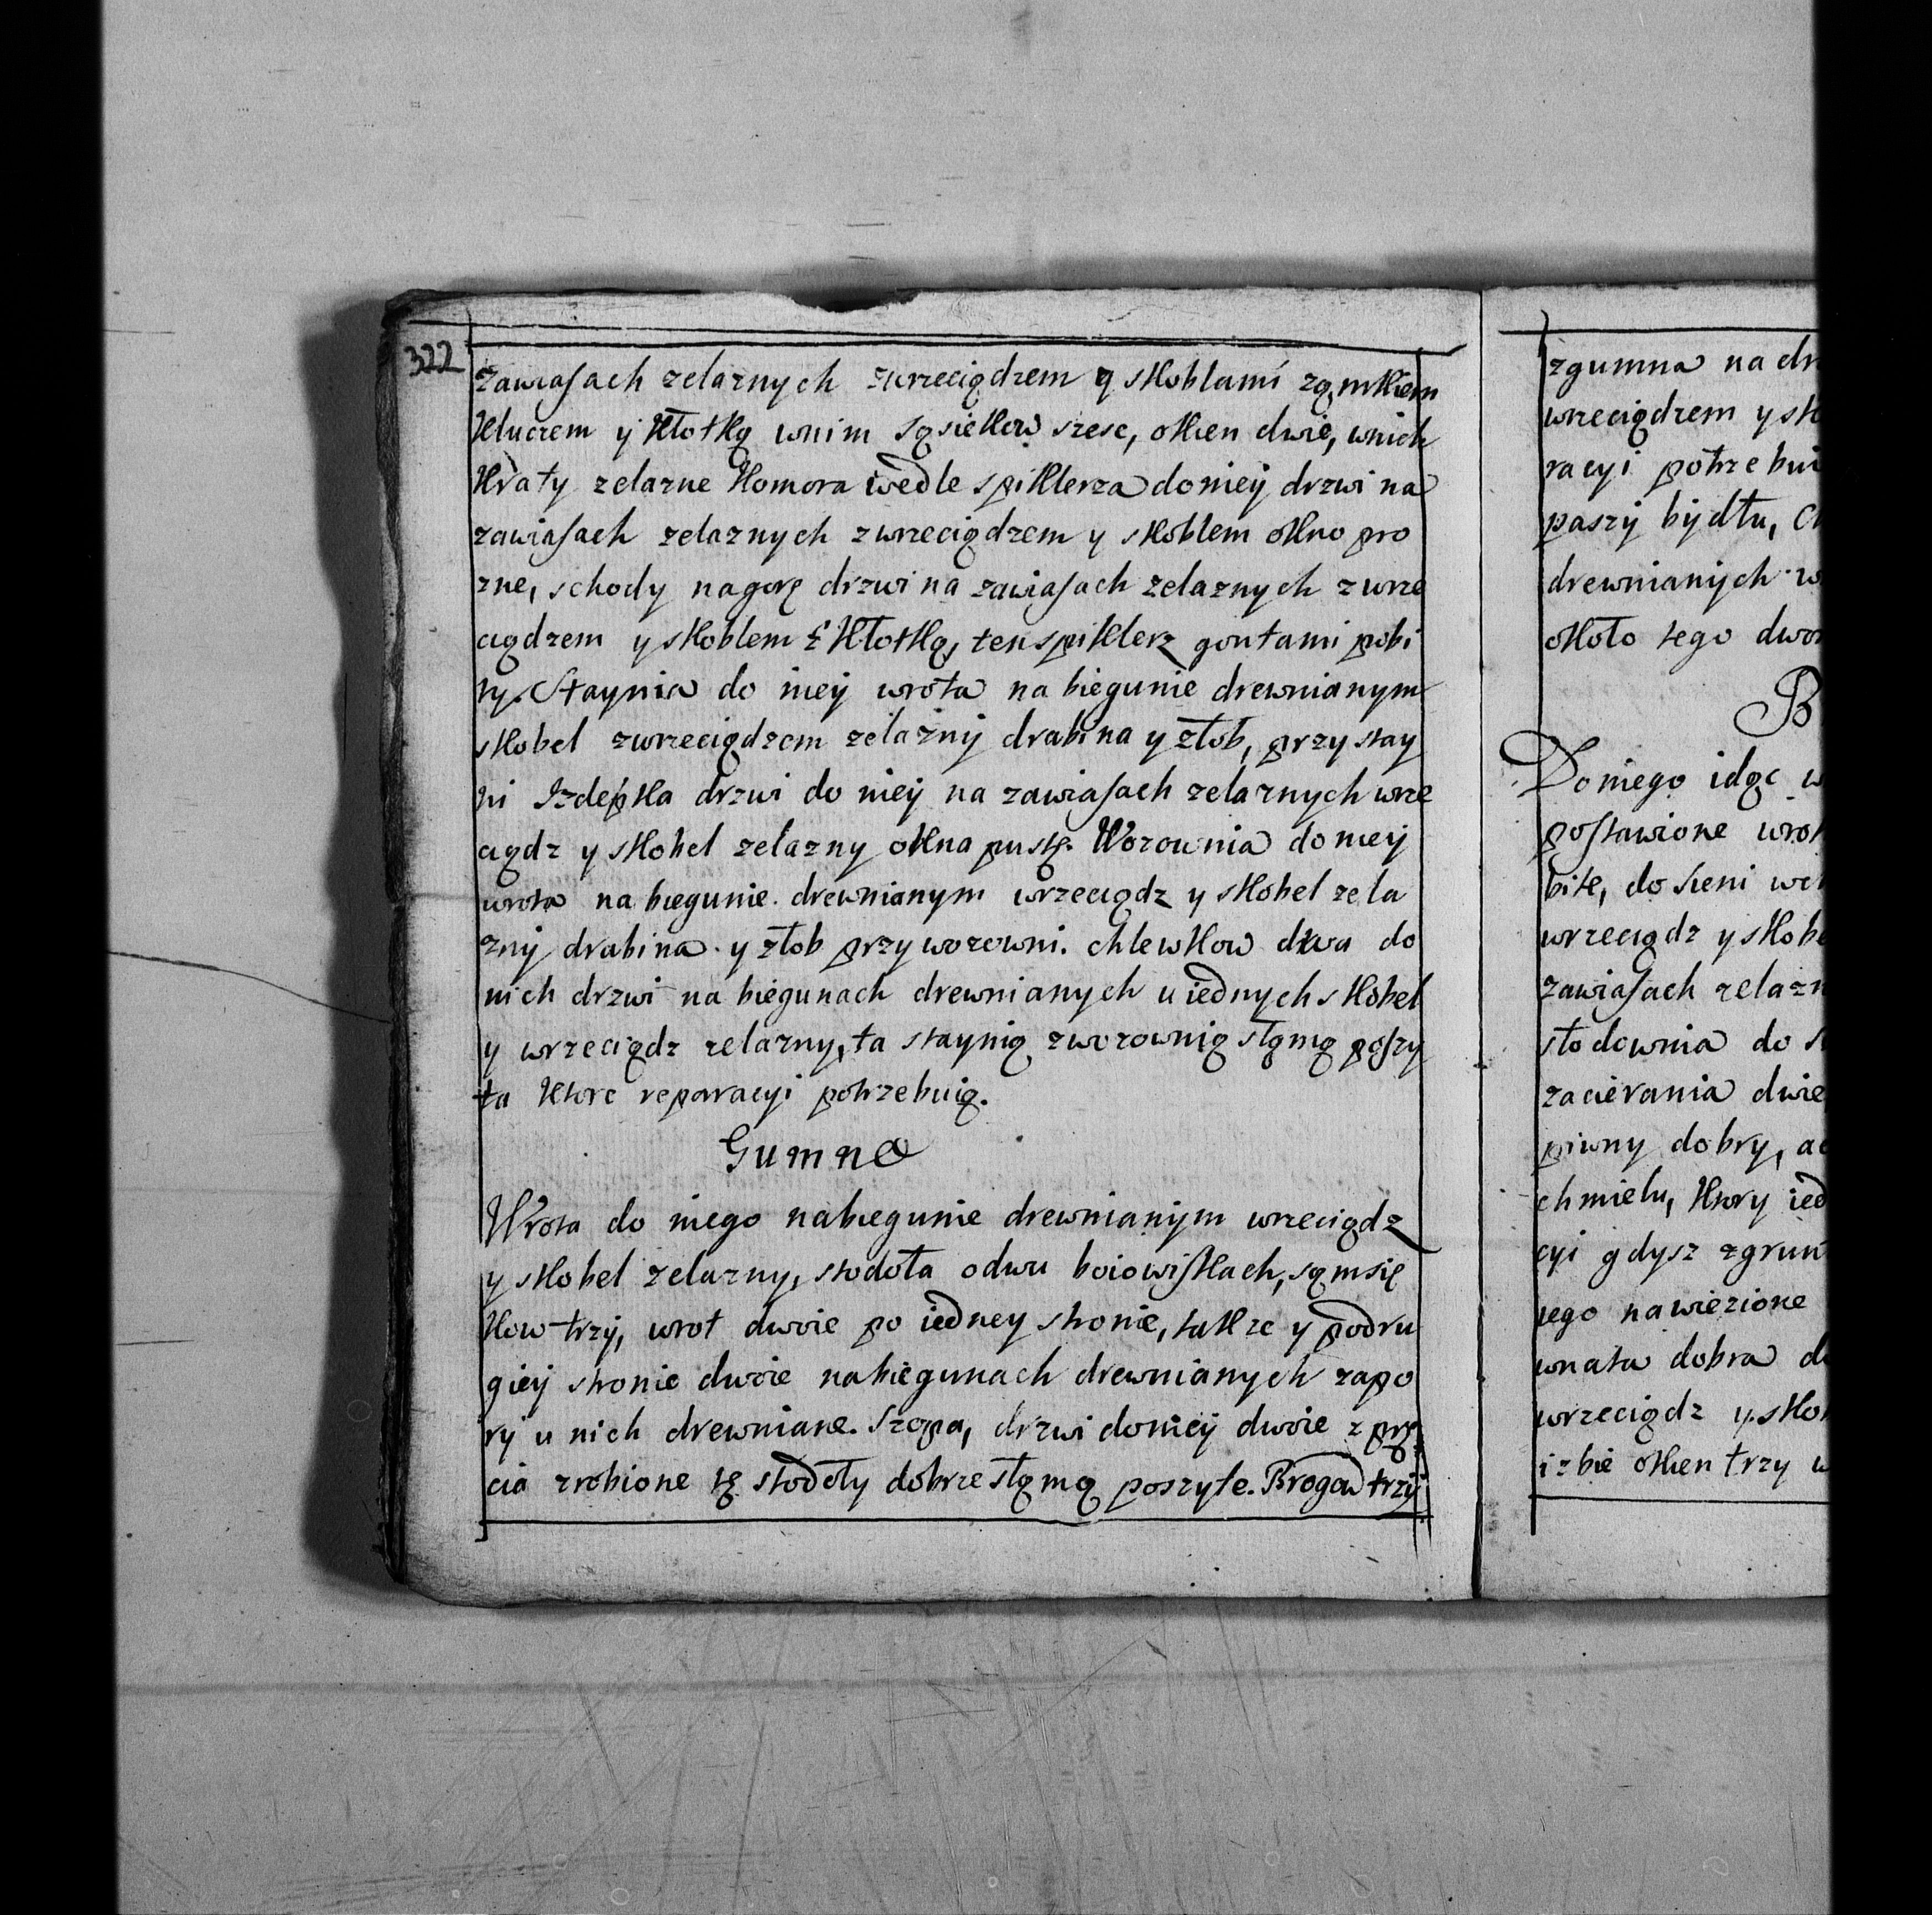 322
zawiasach zelaznych zwrzeciądzem y skoblami ządmkiem
kluczem y kłotką wnim sąsiekow szesc, okien dwie, wnich
kraty zelazne komora wedle spiklerza do niey drzwi na
zawiasach zelaznych zwrzeciądzem y skoblem okno pro
zne, schody nagorę drzwi na zawiasach zelaznych zwrze
ciądzem y skoblem z kłotką, ten spiklerz gontami pobi
ty. Staynia do niey wrota na biegunie drewnianym
skobel zwrzeciądzem zelazny drabina y złob, przy stay
ni Izdepka drzwi do niey na zawiasach zelaznych wrze
ciądz y skobel zelazny okna puste. Wozownia do niey
wrota na biegunie drewnianym wrzeciądz y skobel zela
zny drabina y złob przy wozowni. chlewkow dwa do
nich drzwi na biegunach drewnianych u iednych skobel
y wrzeciądz zelazny, ta staynią zwozownią słąmą poszy
ta ktore reparacyi potrzebuią.
Gumno
Wrota do niego nabiegunie drewnianym wrzeciądz
y skobel zelazny, stodoła odwu boiowiskach, sąmsię
kow trzy, wrot dwoie po iedney stronie, takze y podru
giey stronie dwoie nabiegunach drewnianych zapo
ry u nich drewniane. Szopa, drzwi doniey dwoie z prę
cia zrobione tę stodoły dobrze słąmą poszyte. Brogow trzy
zgumna na
wrzeciądzem y
racyi
paszy bydłu,
drewnianych
około tego
Do niego idąc
postawione
bite, do sieni
wrzeciądz y
zawiasach
słodownia do
zacierania dwie
piwny dobry,
chmielu, ktory
cyi gdysz
iego nawiezione
wnata dobra
wrzeciądz y
izbie okien trzy